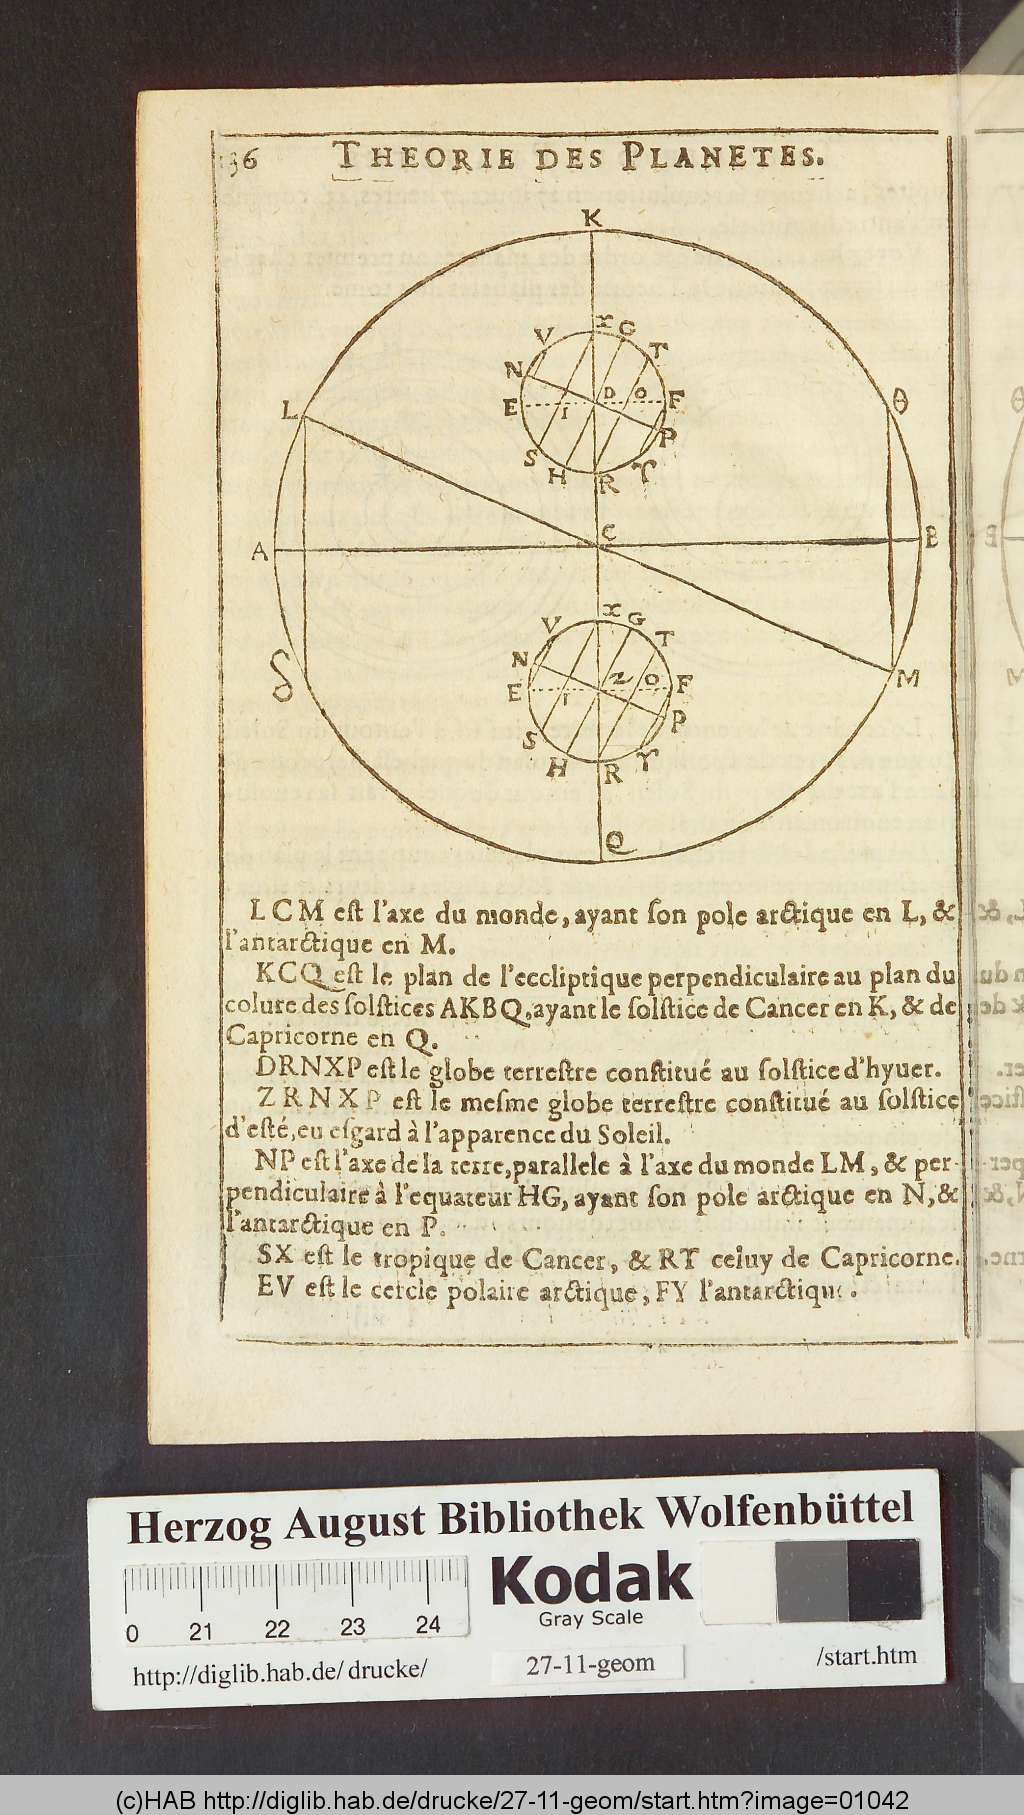 136 THEORIE DES PLANETES.
K
V X G T
N
E I D O F
P
S H R ϒ
L θ
A C B
V X G T
N
E I Z O F
P
S H R ϒ
δ M
Q
L C M eſt l'axe du monde, ayant ſon pole arctique en L, &
l'antarctique en M.
KCQ eſt le plan de l'eccliptique perpendiculaire au plan du
colure des ſolſtices AKBQ, ayant le ſolſtice de Cancer en K, & de
Capricorne en Q.
DRNXP eſt le globe terreſtre conſtitué au ſolſtice d'hyuer.
Z R N X P eſt le meſme globe terreſtre conſtitué au ſolſtice
d'eſté, eu eſgard à l'apparence du Soleil.
NP eſt l'axe de la terre, parallele à l'axe du monde LM, & per-
pendiculaire à l'equateur HG, ayant ſon pole arctique en N, &
l'antarctique en P.
SX eſt le tropique de Cancer, & RT celuy de Capricorne.
EV eſt le cercle polaire arctique, FY l'antarctique.
Herzog August Bibliothek Wolfenbüttel
Kodak
Gray Scale
0 21 22 23 24
http://diglib.hab.de/drucke/ 27-11-geom /start.htm
(c)HAB http://diglib.hab.de/drucke/27-11-geom/start.htm?image=01042